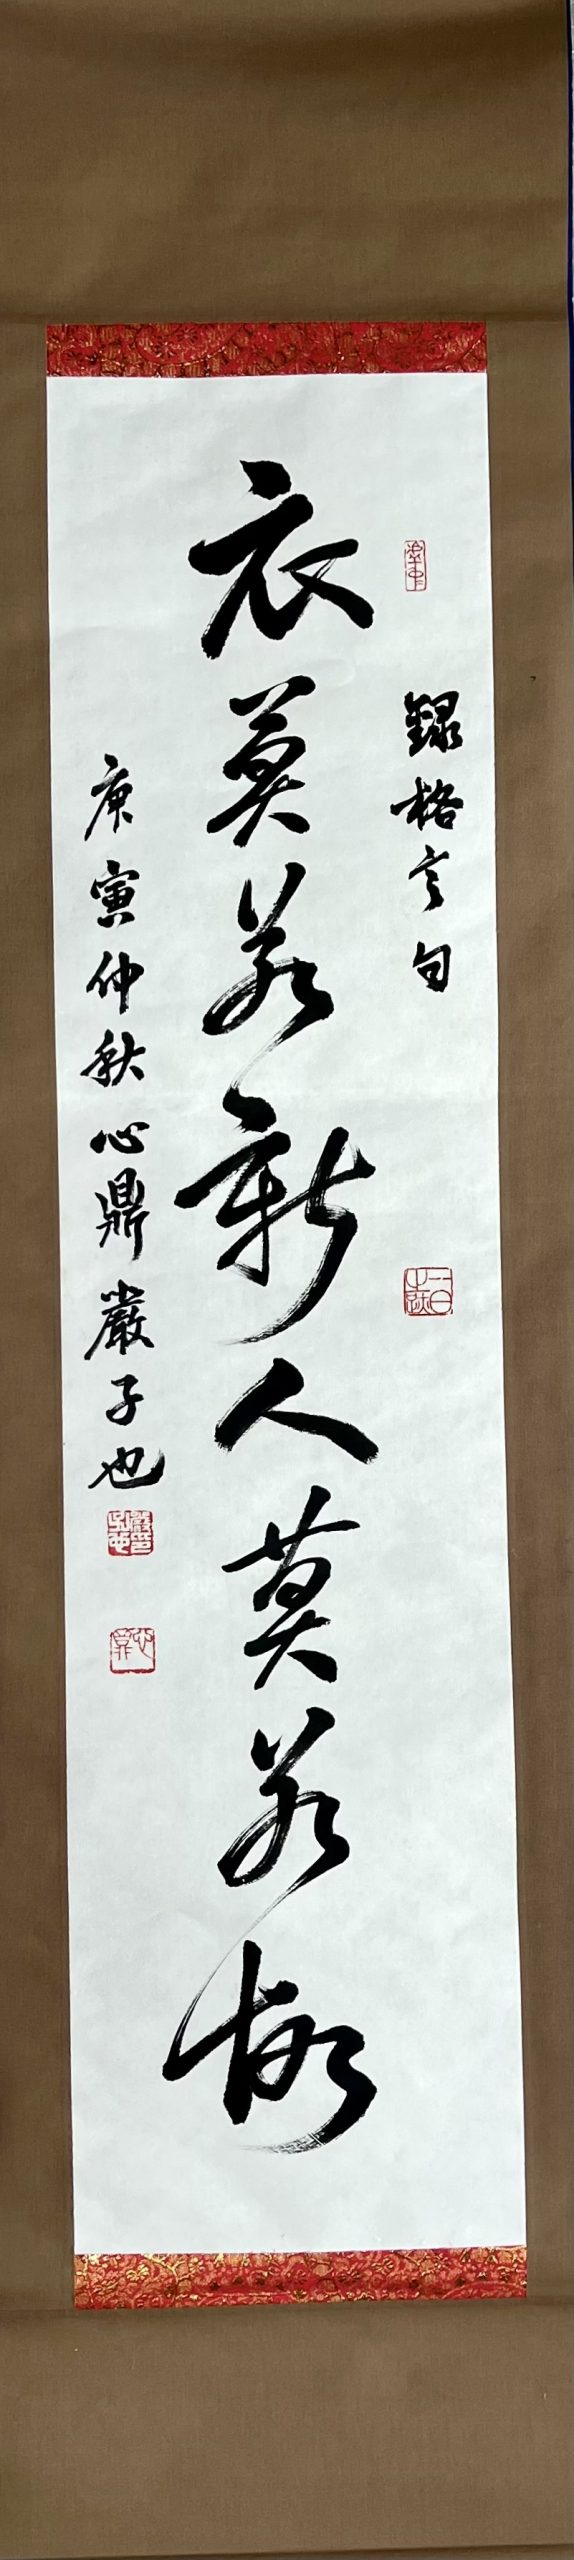 錄格言句
衣莫若新人莫若故
庚寅仲秋心鼎嚴子也
心鼎